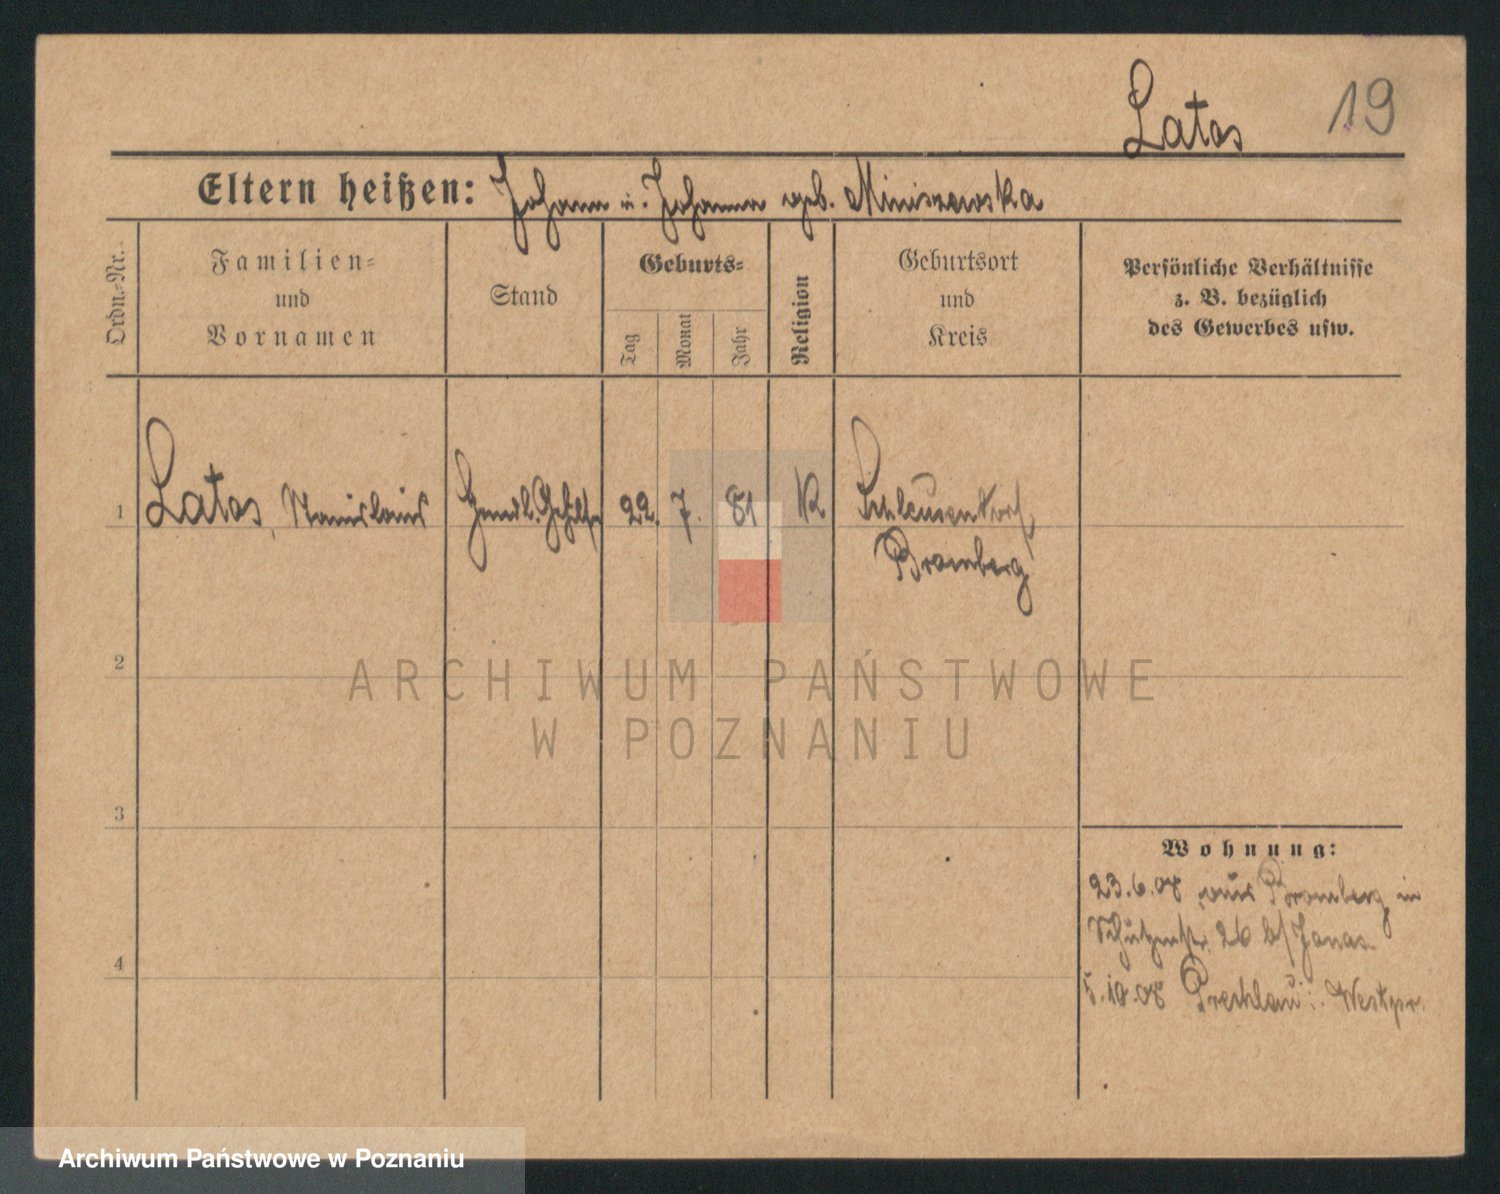 Latos 19
Eltern heißen: Johann u. Johanna geb. Miniszewska
Ordn.-Nr.
Familien-
und
Vornamen
Stand
Geburts-
Tag
Monat
Jahr
Religion
Geburtsort
und
Kreis
Persönliche Verhältnisse
z. B. bezüglich
des Gewerbes usw.
1 Latos, Stanislaus Handl. Gehilfe 22. 7. 81 K Schleusendorf,
Bromberg
2
ARCHIWUM PAŃSTWOWE
W POZNANIU
3
Wohnung:
23.6.08 aus Bromberg in
Schützenstr. 26 b/ Jonas
4
5.10.08 Prechlau i. Westpr.
Archiwum Państwowe w Poznaniu